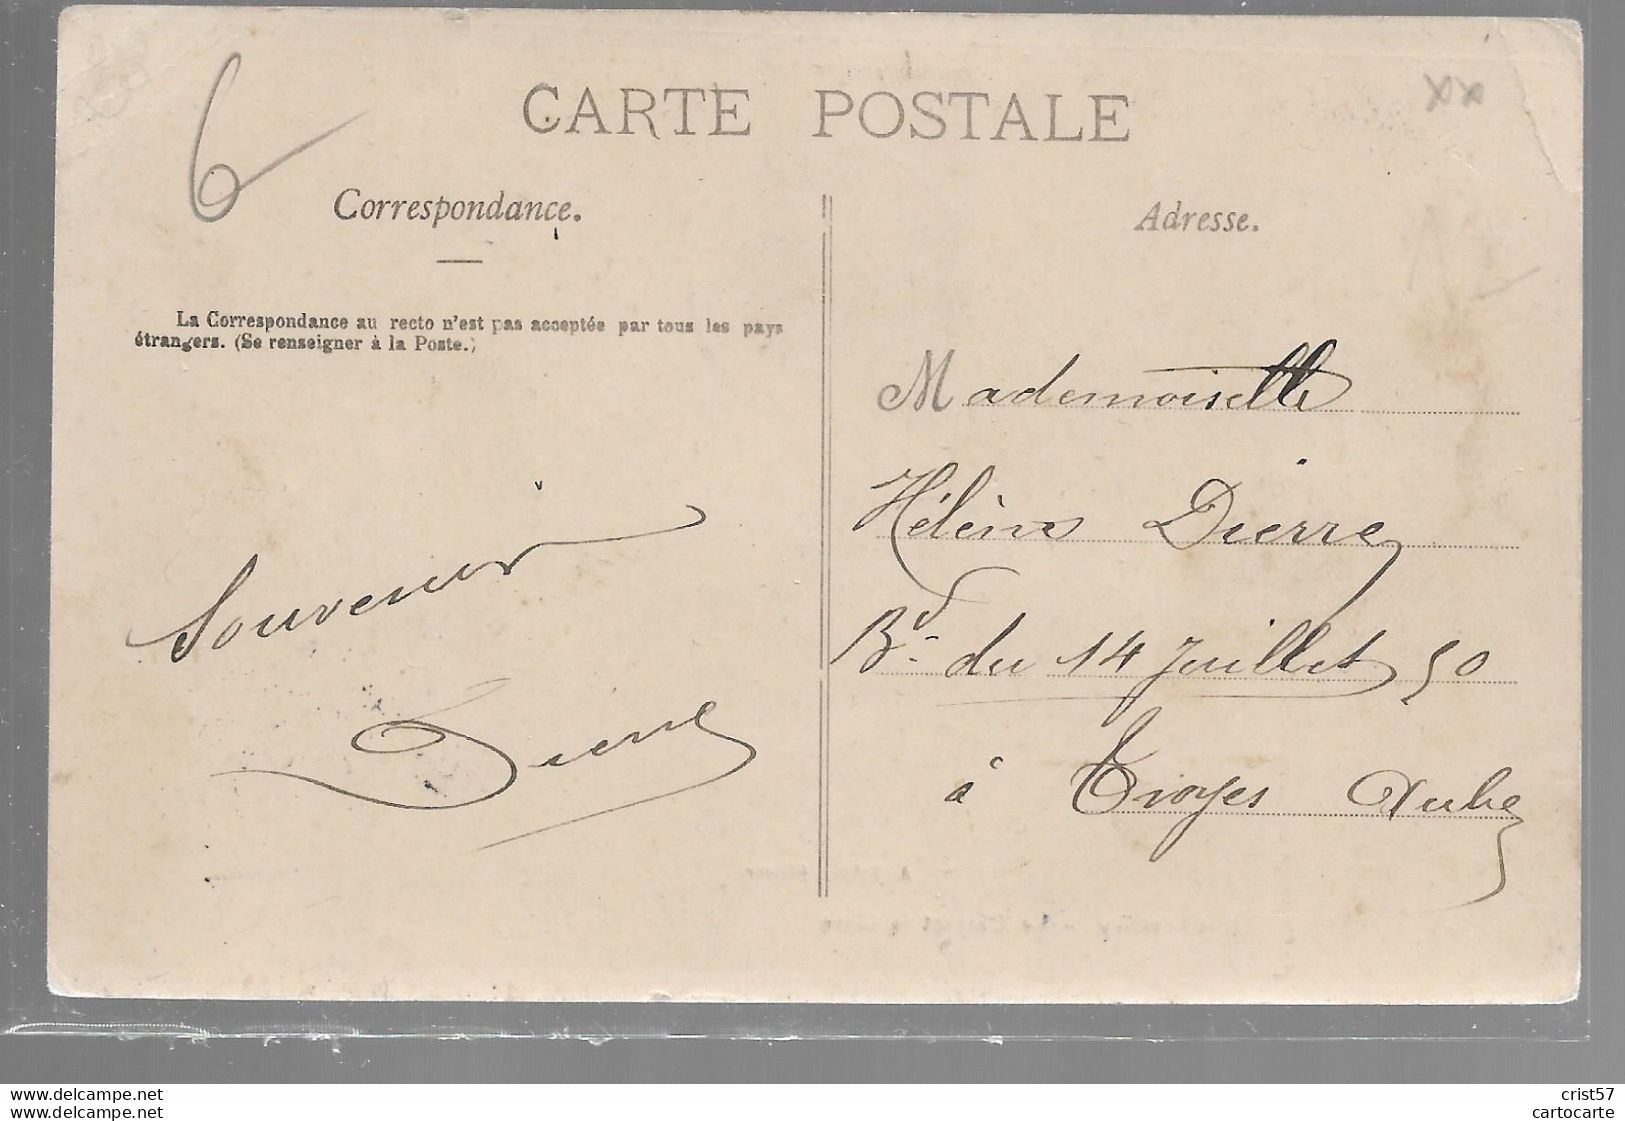 6
CARTE POSTALE
xx
Correspondance.
La Correspondance au recto n'est pas acceptée par tous les pays
étrangers. (Se renseigner à la Poste.)
Souvenir
Dierre
Adresse.
Mademoiselle
Hélène Dierre
Bd. du 14 Juillet 50
à Troyes Aube
delcampe.net
delcampe.net
crist57
cartocarte